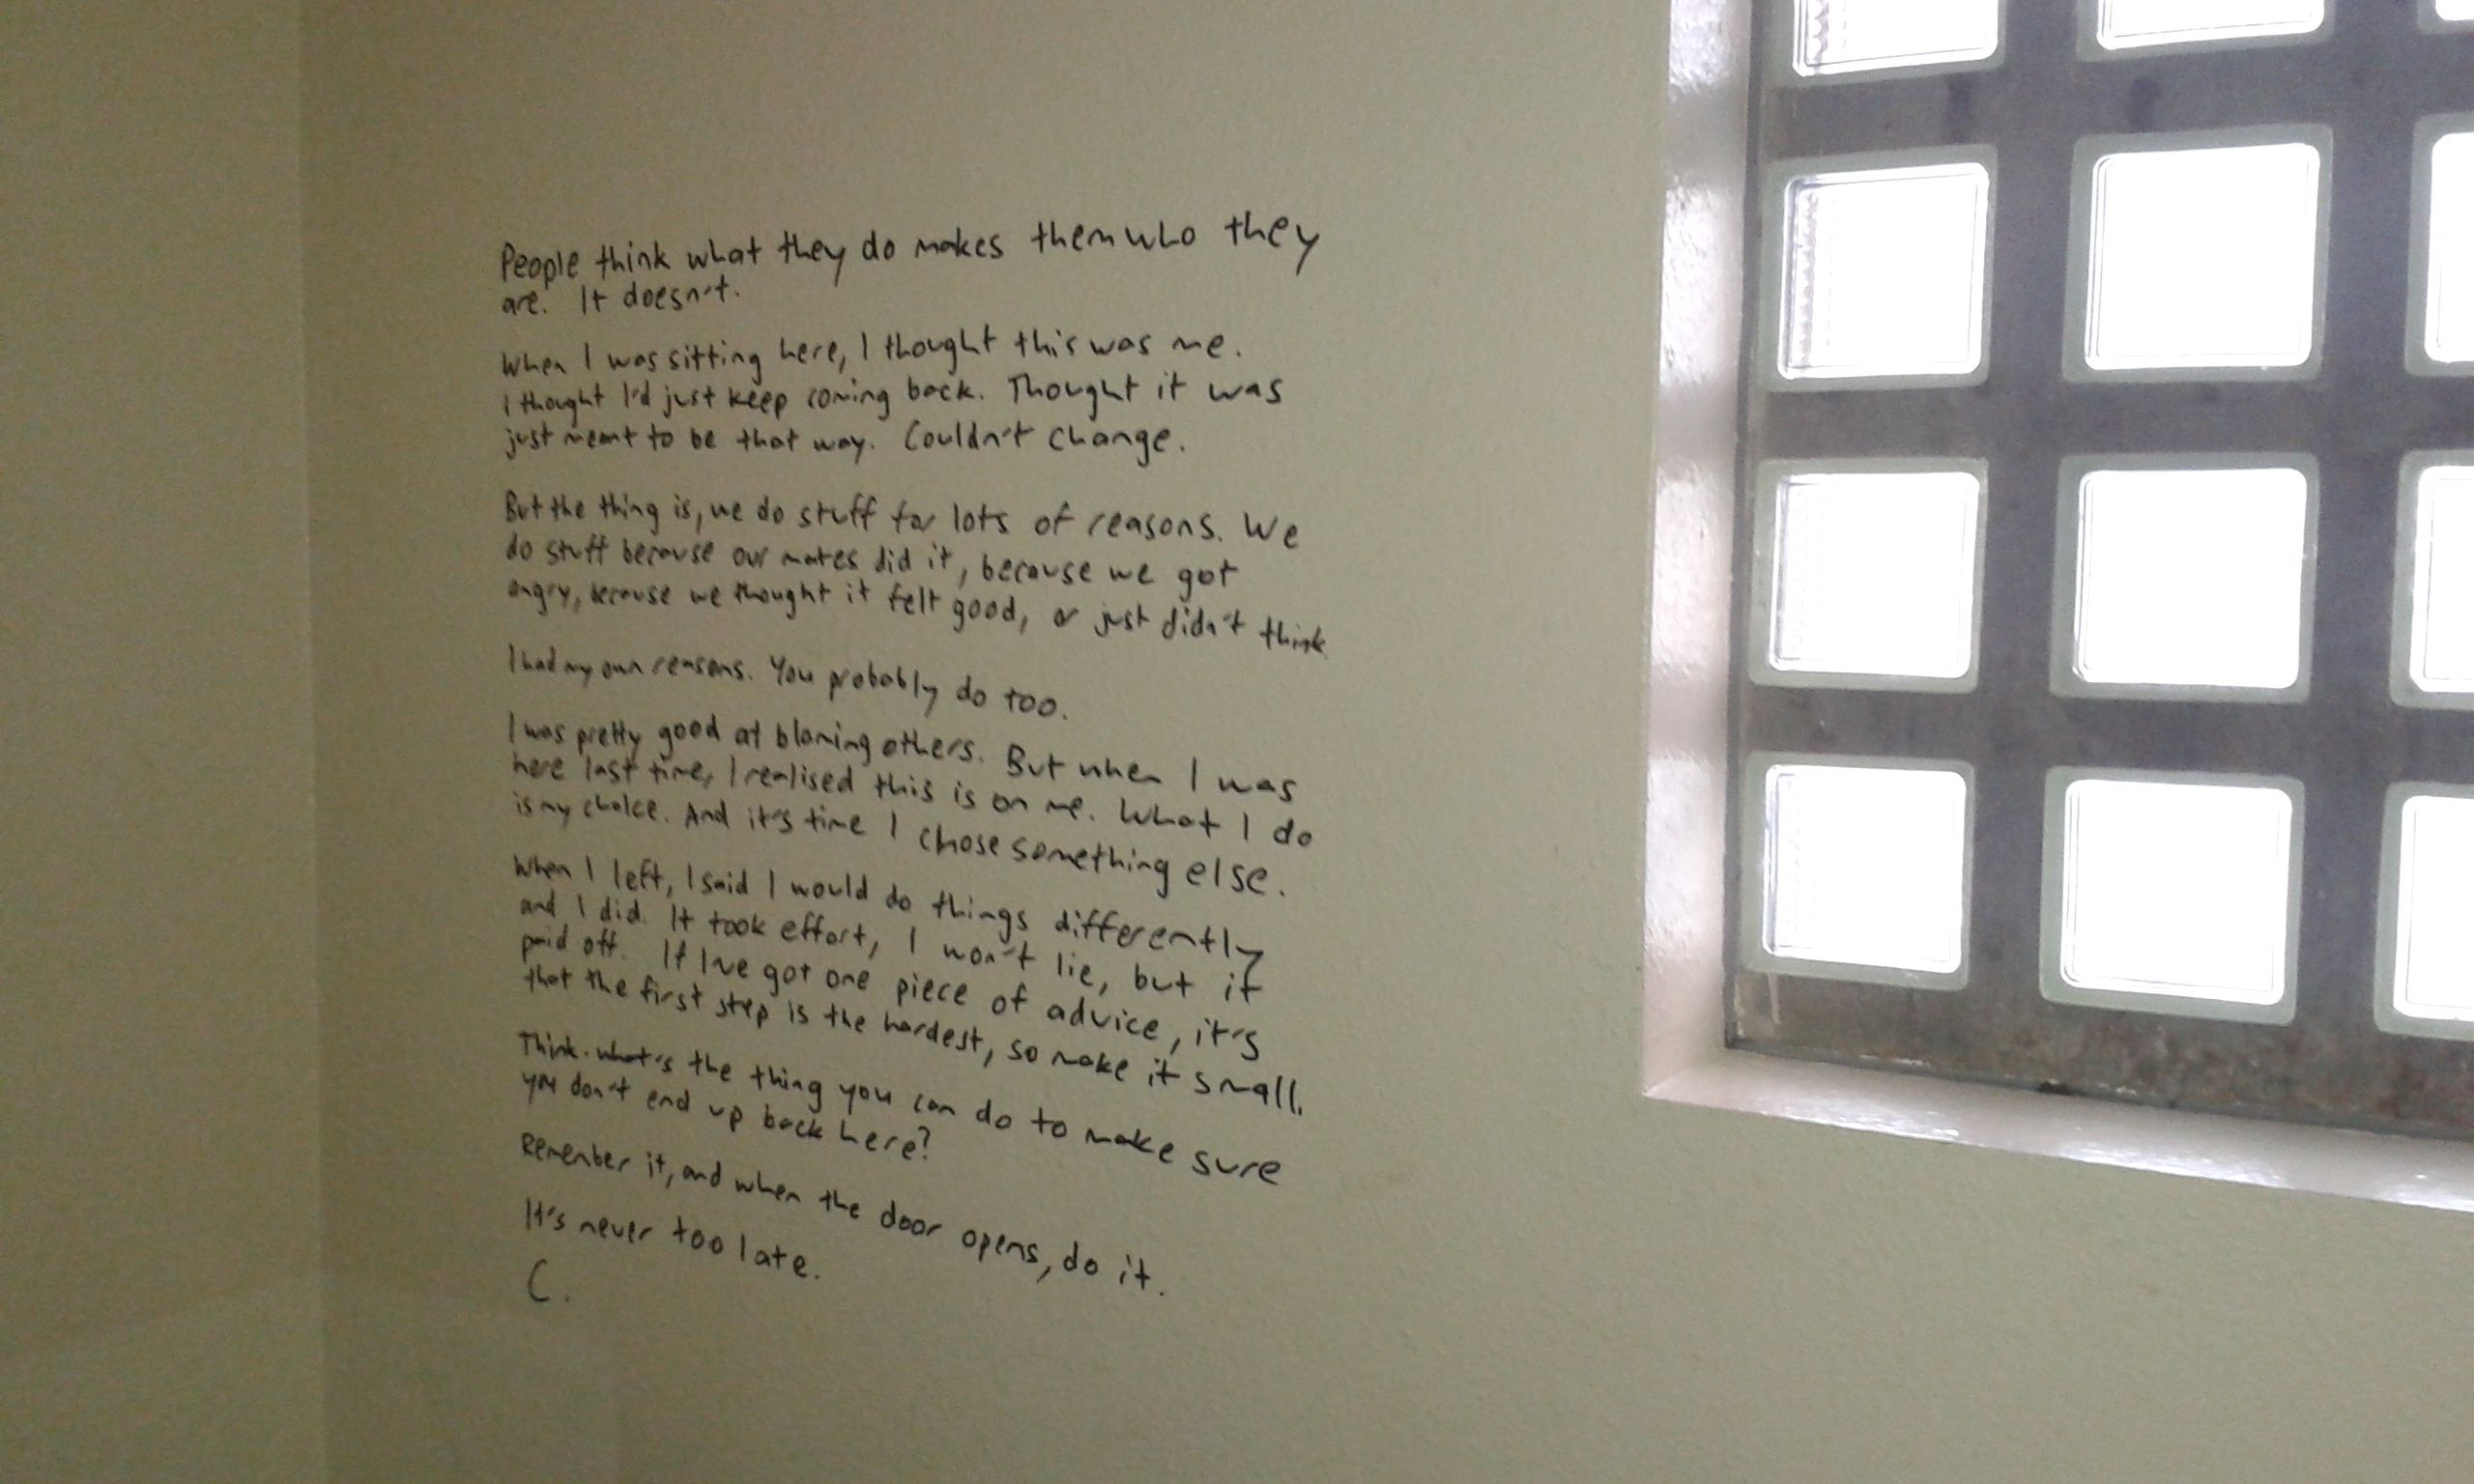 People think what they do makes them who they
are. It doesn't.
When I was sitting here, I thought this was me.
I thought I'd just keep coming back. Thought it was
just meant to be that way. Couldn't change.
But the thing is, we do stuff for lots of reasons. We
do stuff because our mates did it, because we got
angry, because we thought it felt good, or just didn't think
I had my own reasons. You probably do too.
I was pretty good at blaming others. But when I was
here last time, I realised this is on me. What I do
is my choice. And it's time I chose something else.
When I left, I said I would do things differently
and I did. It took effort, I won't lie, but it
paid off. If I've got one piece of advice, it's
that the first step is the hardest, so make it small.
Think. what's the thing you can do to make sure
you don't end up back here?
Remember it, and when the door opens, do it.
It's never too late.
C.